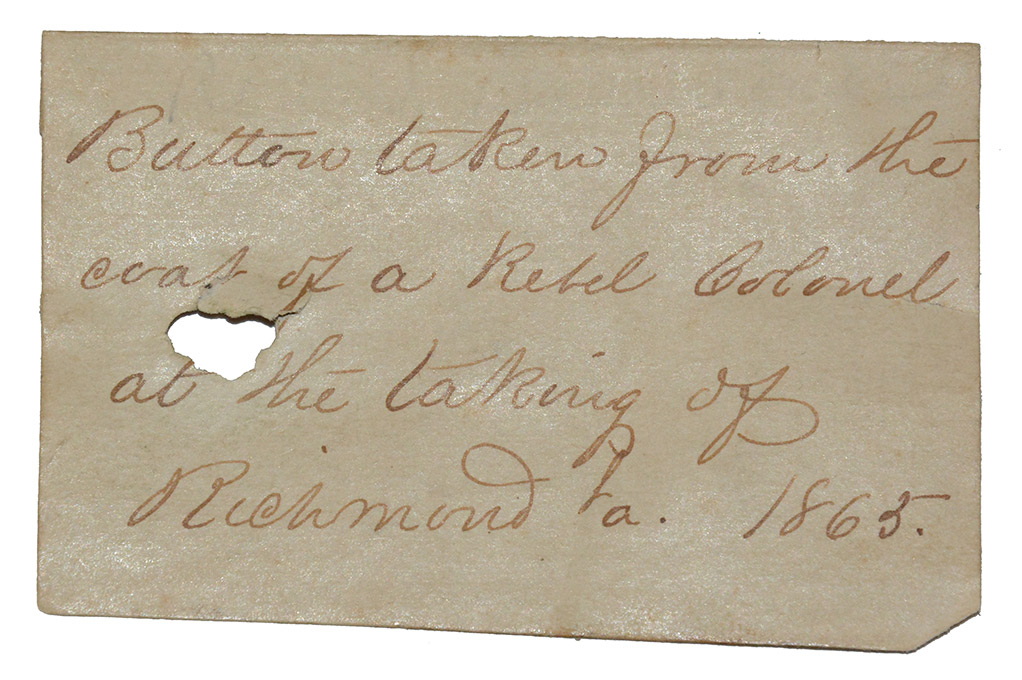 Button taken from the
coat of a Rebel Colonel
at the taking of
Richmond Va. 1865.